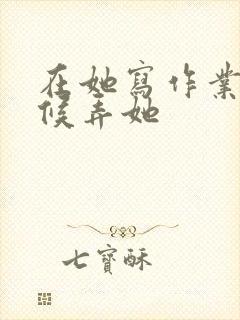 在她寫作業
候弄她
七寶酥